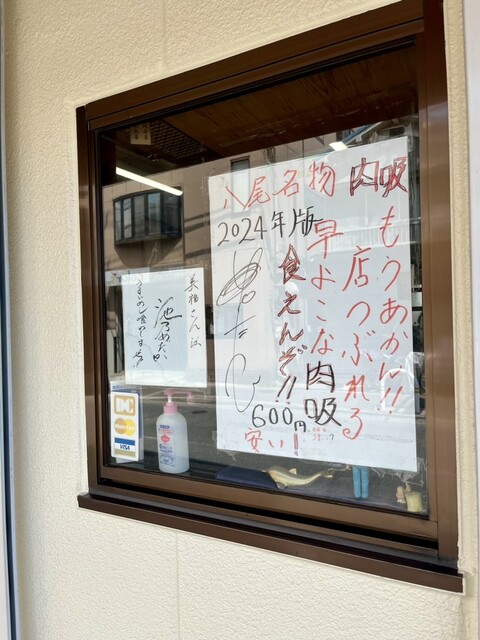 八尾名物 肉吸
2024年版
もうあかん!!
店つぶれる
早よこな
食えんぞ!!
肉吸
600円
安い!
池乃めだか
DC
MasterCard
VISA